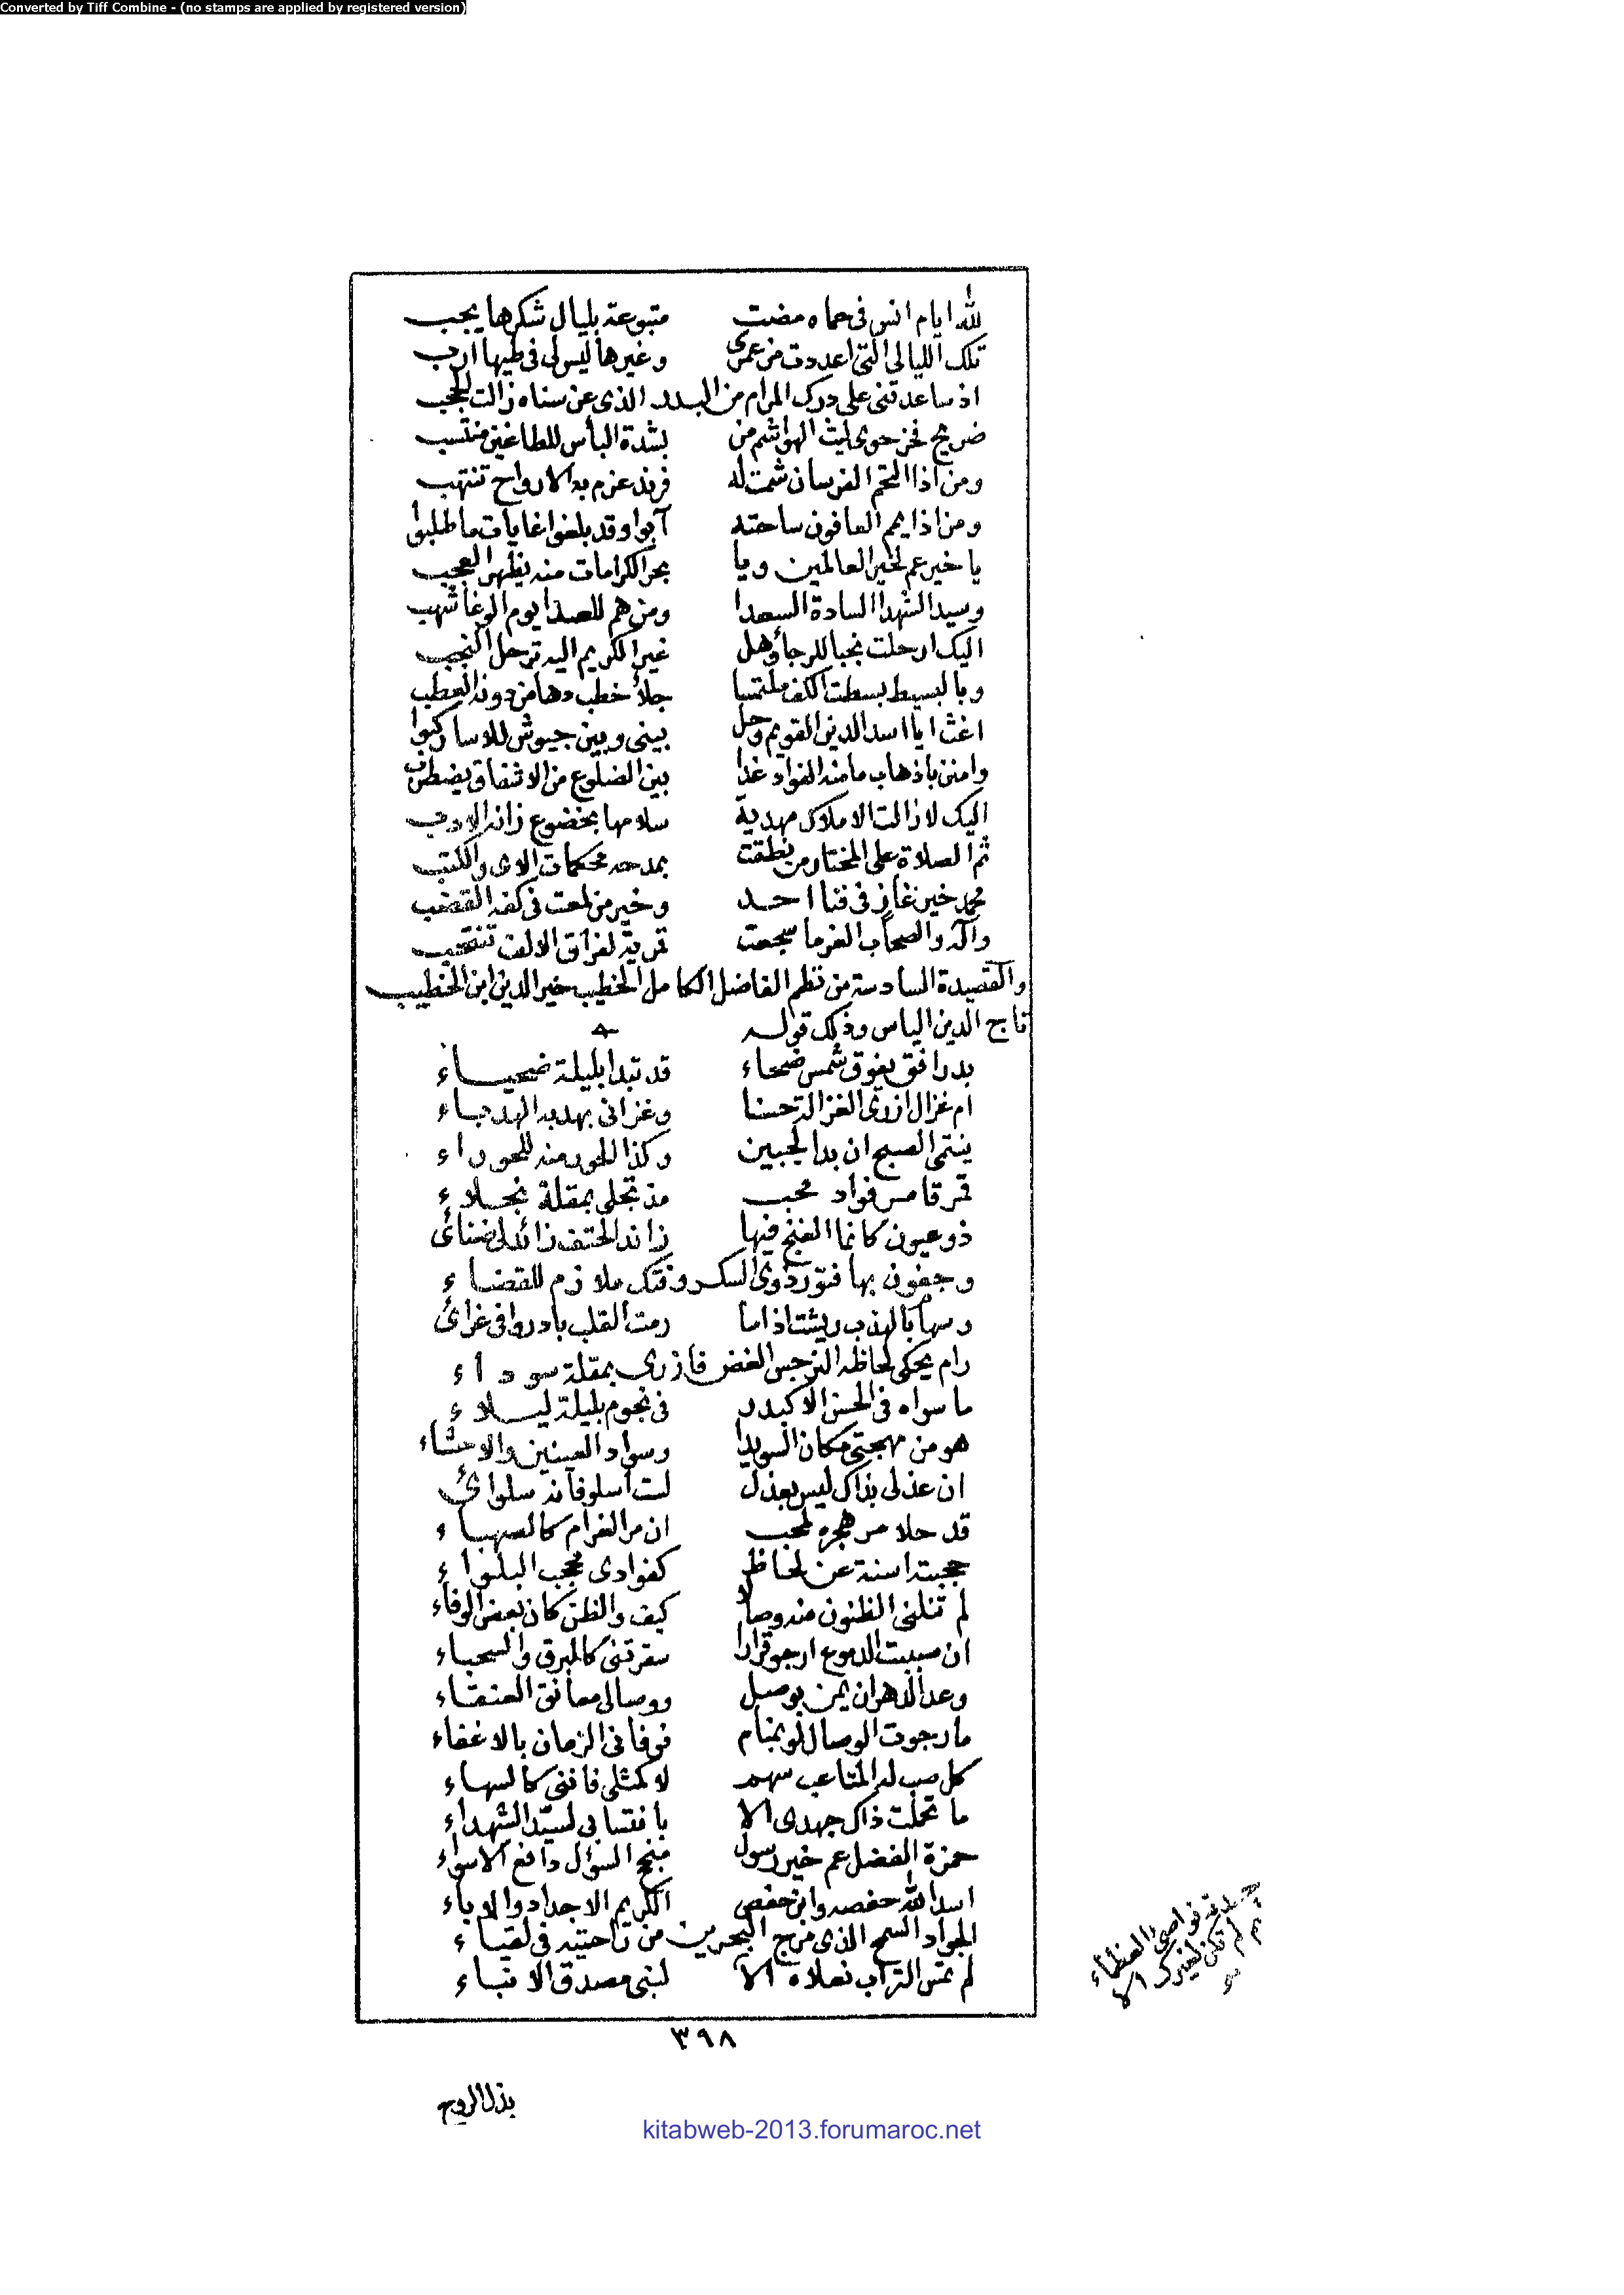 Converted by Tiff Combine - (no stamps are applied by registered version)
لله ايام انس فى حماه مضت متبوعة بليال شكرها يجب
تلك الليالى التى اعددت من عمرى وغيرها ليس لى فى طيها ارب
اذ ساعدتنى على درك المرام من البدر الذى عن سناه زالت الحجب
ضريح فخر حوى ليث الهواشم من بشدة البأس للطاغين منتسب
ومن اذا التحم الفرسان شمت له فرند عزم به الارواح تنتهب
ومن اذا يمم العافون ساحته آبوا وقد بلغوا غايات ما طلبوا
يا خير عم لخير العالمين ويا بحر الكرامات منه يظهر العجب
وسيد الشهدا السادة السعدا ومن هم للعدا يوم الوغا شهب
اليك ارحلت نجبا للرجا وهل غير الكريم اليه ترحل النجب
وبالبسيط بسطت الكف ملتمسا جلأ خطب دها من دونه العطب
اغث ايا اسد الدين القويم وحل بينى وبين جيوش للاسا ركبوا
وامنن باذهاب ما منه الفواد غدا بين الضلوع من الاشفاق يضطرب
اليك لازالت الاملاك مهدية سلامها بخضوع زانه الادب
ثم الصلاة على المختار من نطقت بمدحه محكمات الاى والكتب
محمد خير غاز فى فنا احد وخير من لمعت فى كفه القضب
وآله والصحاب الغر ما سجعت قمرية لفراق الالف تنتحب
والقصيدة السادسة من نظم الفاضل الكامل الخطيب خير الدين ابن الخطيب
تاج الدين الياس وذلك قوله
بدر افق يفوق شمس ضحاء قد تبدا بليلة ضحياء
ام غزال ازرى الغزالة حسنا وغزانى بهدبه الهدباء
ينتمى الصبح ان بدا لجبين وكذا الحور منه للحوراء
قمر قامر فواد محب مذ تجلى بمقلة نجلاء
ذو عيون كانما الغنج فيها زاند الحتف زائد لضنائى
وجفون بها فتور ذوى السكر وفتك ملازم للقضاء
وسهابالهدب ريشت اذا ما رمت القلب بادروا فى غرائى
رام يحكى لحاظه النرجس الغض فازرى بمقلة سوداء
ما سواه فى الحسن الا كبدر فى نجوم بليلة ليلاء
هو من مهجتى مكان السويدا وسواد العينين والاحشاء
ان عذلى بذاك ليس بعذل لست اسلو فانه سلوائى
قد حلا مر هجره لمحب ان مر الغرام كالصهباء
حجبته اسنة عن لحاظ كفوادى محجب البلواء
لم تنلنى الظنون منه وصالا كيف والظن كان بعض الوفاء
ان صببت الدموع ارجو قرارا سعرتنى كالبرق والسحباء
وعد الدهر ان يمن بوصل ووصالى معانق العنقاء
ما رجوت الوصال لو بمنام فوفانى الزمان بالاغفاء
كل صب له المتاعب سهم لا كمثلى فاننى كالسهاء
ما تحملت ذاك جهدى الا بانتسابى لسيد الشهداء
حمزة الفضل عم خير رسول منجح السؤال دافع الاسواء
اسد الله حفصه وابن حفص الكريم الاجداد والاباء
الجواد السمح الذى مرج البحرين من راحتيه فى لقياء
لم تمس التراب نعلاه الا لنبى مصدق الانباء
نواصى العظماء
لم تكن لغيرك الا
٣٩٨
بذل الروح
kitabweb-2013.forumaroc.net